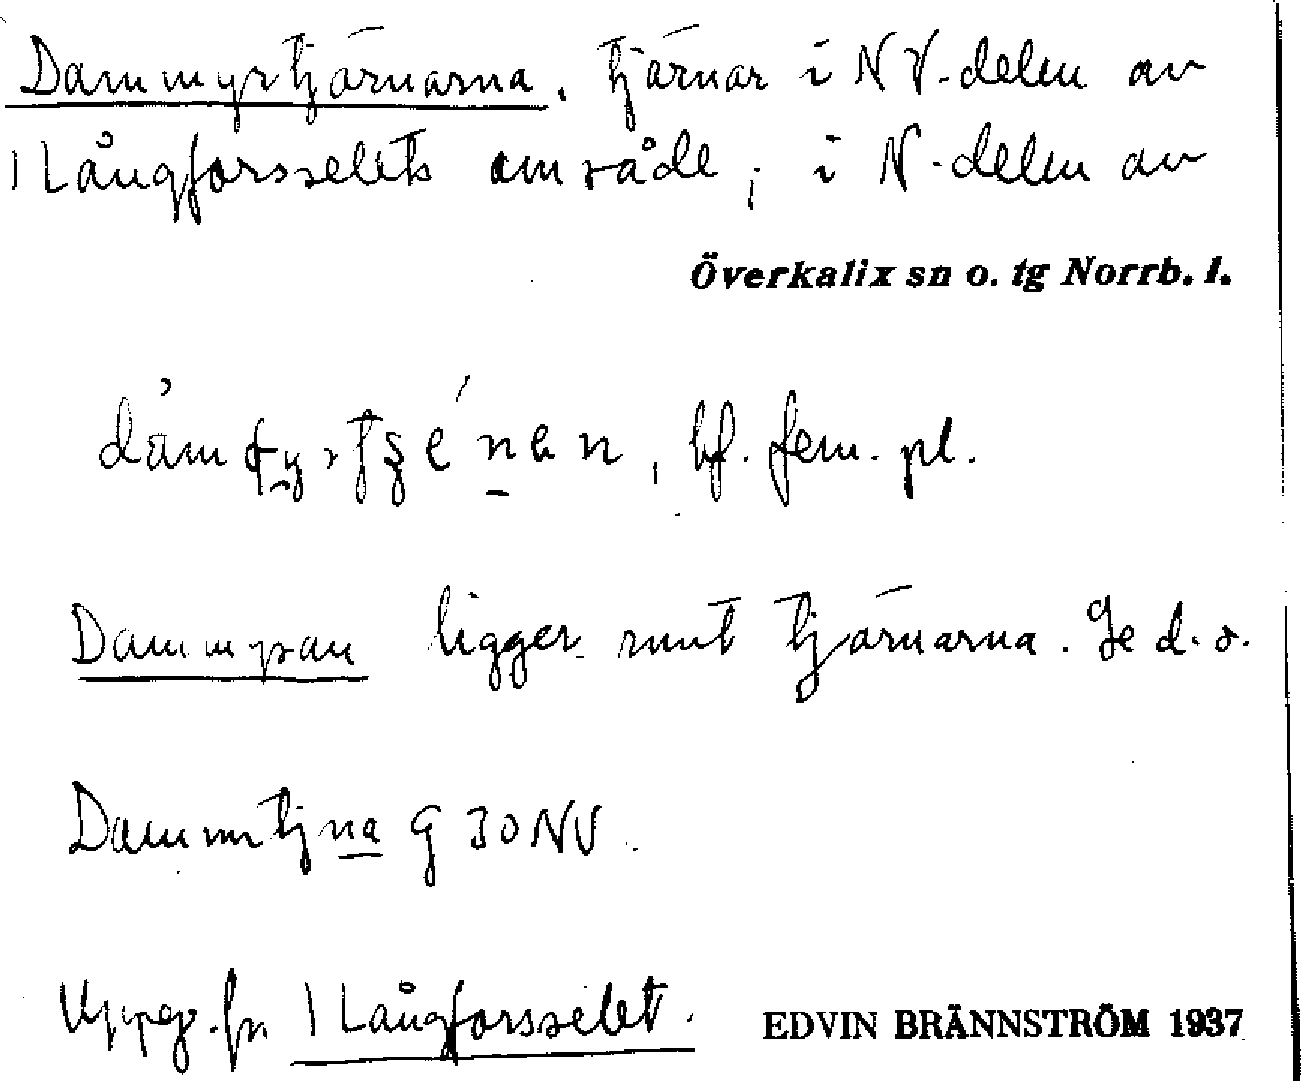 Dammyrtjärnarna. tjärnar i NV-delen av
1 Långforsselets område, i N-delen av
Överkalix sn o. tg Norrb. l.
bf. fem. pl.
Dammyran ligger runt tjärnarna. Se d. o.
Dammtjna G 30 NV.
Uppg. fr. 1 Långforsselet. EDVIN BRÄNNSTRÖM 1937